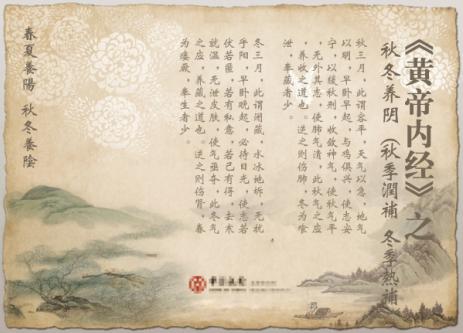 《黄帝内经》之
秋冬养阴（秋季潤補 冬季热補
秋三月，此谓容平，天气以急，地气
以明，早卧早起，与鸡俱兴，使志安
宁，以缓秋刑，收敛神气，使秋气平
，无外其志，使肺气清，此秋气之应
，养收之道也。逆之则伤肺，冬为飧
泄，奉藏者少。
冬三月，此谓闭藏，水冰地坼，无扰
乎阳，早卧晚起，必待日光，使志若
伏若匿，若有私意，若已有得，去寒
就温，无泄皮肤，使气亟夺，此冬气
之应，养藏之道也。逆之则伤肾，春
为痿厥，奉生者少。
春夏養陽 秋冬養陰